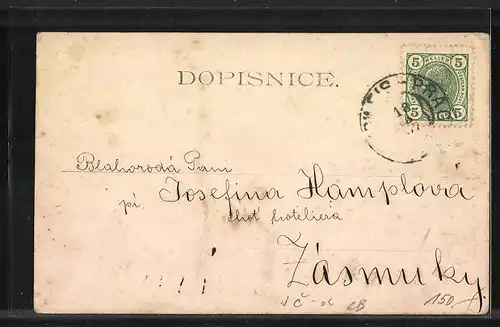 DOPISNICE.
5 HELLER 5
5 5
PRAG
Blahorodá Paní
pí. Josefina Hamplová
chot hoteliera
Zásmuky
! ! ! !
150